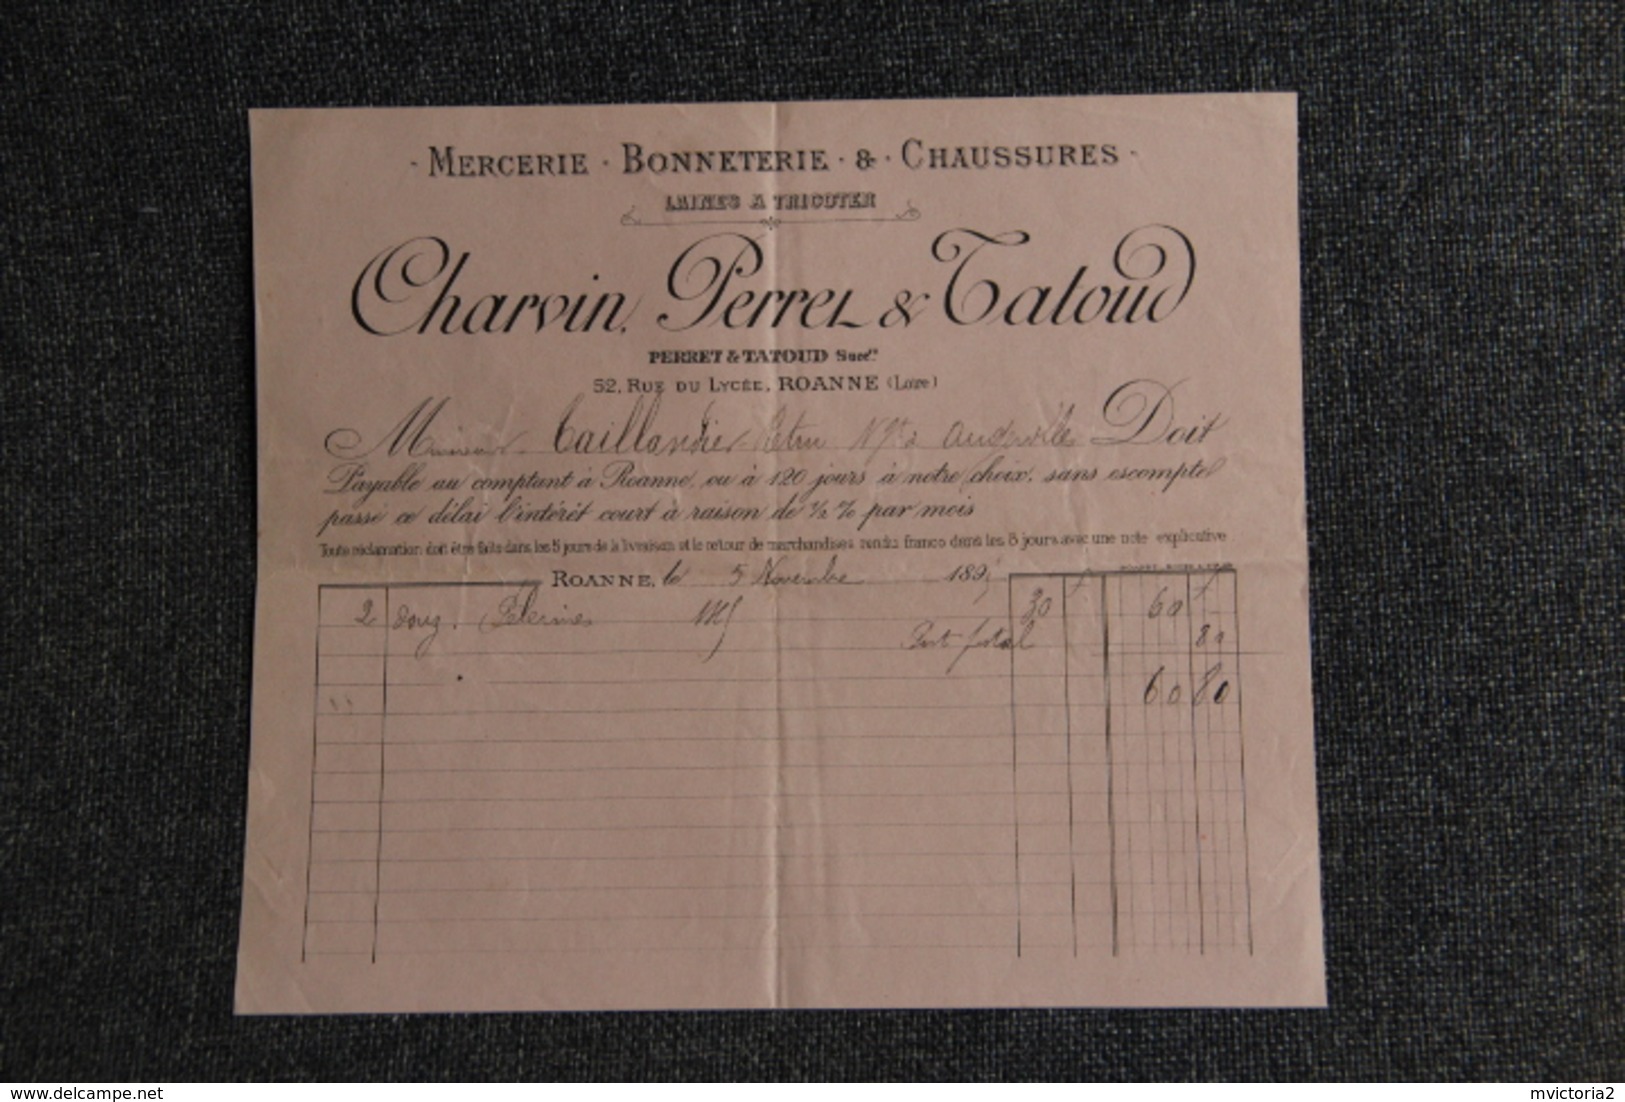 MERCERIE · BONNETERIE · & · CHAUSSURES
LAINES A TRICOTER
Charvin, Perret & Tatoud
PERRET & TATOUD Succrs
52, RUE DU LYCÉE, ROANNE (Loire)
Monsieur Taillandier Doit
Payable au comptant à Roanne, ou à 120 jours à notre choix, sans escompte
passé ce délai l'intérêt court à raison de ½ % par mois
Toute réclamation doit être faite dans les 5 jours de la livraison et le retour de marchandises rendu franco dans les 8 jours avec une note explicative
ROANNE, le 5 Novembre 189
2 Douz. Pelerines 30 60
Port 80
60 80
delcampe.net
mvictoria2